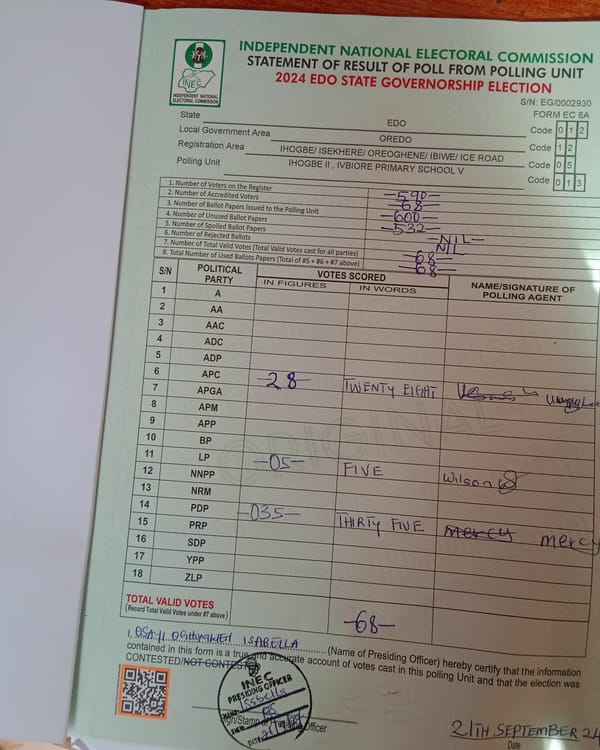 INDEPENDENT NATIONAL ELECTORAL COMMISSION
STATEMENT OF RESULT OF POLL FROM POLLING UNIT
2024 EDO STATE GOVERNORSHIP ELECTION
INEC
INDEPENDENT NATIONAL
ELECTORAL COMMISSION
S/N: EG/0002930
FORM EC 8A
State EDO Code 0 1 2
Local Government Area OREDO Code 1 2
Registration Area IHOGBE/ ISEKHERE/ OREOGHENE/ IBIWE/ ICE ROAD Code 0 5
Polling Unit IHOGBE II , IVBIORE PRIMARY SCHOOL V Code 0 1 3
1. Number of Voters on the Register -590-
2. Number of Accredited Voters -68-
3. Number of Ballot Papers Issued to the Polling Unit -600-
4. Number of Unused Ballot Papers -532-
5. Number of Spoiled Ballot Papers -NIL-
6. Number of Rejected Ballots NIL
7. Number of Total Valid Votes (Total Valid Votes cast for all parties) -68-
8. Total Number of Used Ballots Papers (Total of #5 + #6 + #7 above) -68-
S/N POLITICAL PARTY VOTES SCORED NAME/SIGNATURE OF POLLING AGENT
IN FIGURES IN WORDS
1 A
2 AA
3 AAC
4 ADC
5 ADP
6 APC -28- TWENTY EIGHT
7 APGA
8 APM
9 APP
10 BP
11 LP -05- FIVE Wilson
12 NNPP
13 NRM
14 PDP -035- THIRTY FIVE mercy mercy
15 PRP
16 SDP
17 YPP
18 ZLP
ORIGINAL
TOTAL VALID VOTES
(Record Total Valid Votes under #7 above) -68-
I, ISABELLA (Name of Presiding Officer) hereby certify that the information
contained in this form is a true and accurate account of votes cast in this polling Unit and that the election was
CONTESTED/NOT CONTESTED
INEC
PRESIDING OFFICER
Isabella
Sign/Stamp of Presiding Officer
DATE
21TH SEPTEMBER 24
Date